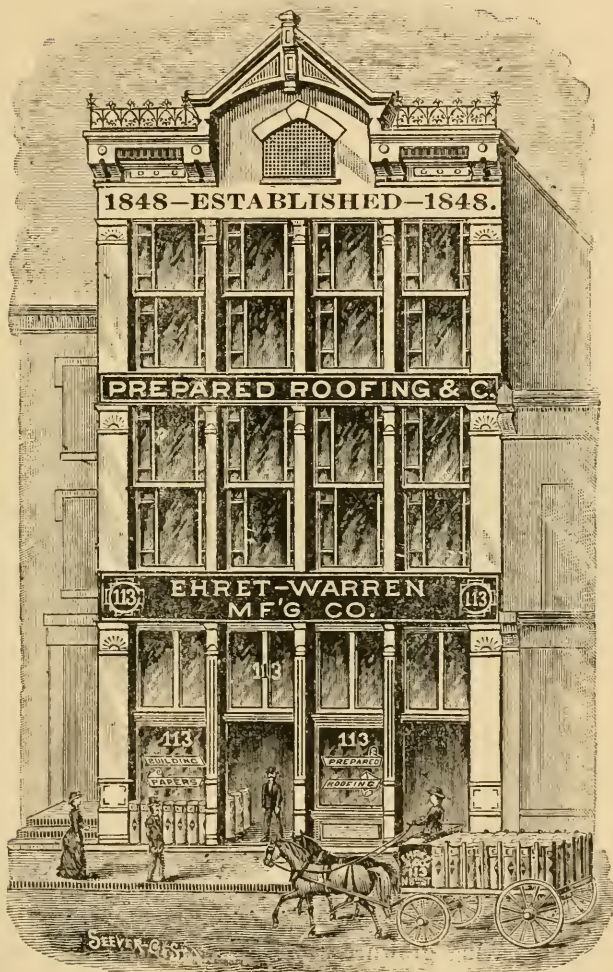 1848-ESTABLISHED-1848.
PREPARED ROOFING & C.
113 EHRET-WARREN 113
MF'G CO.
113
113
BUILDING
PAPERS
113
PREPARED
ROOFING
113
SEEVER